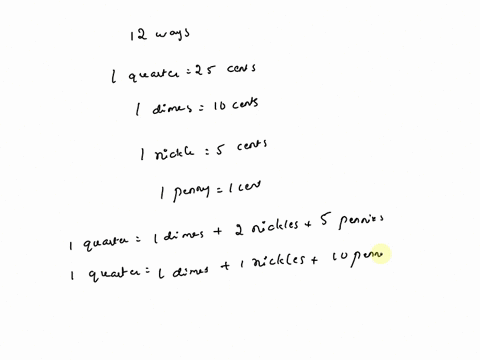 12 ways
1 quarter = 25 cents
1 dimes = 10 cents
1 nickle = 5 cents
1 penny = 1 cent
1 quarter = 1 dimes + 2 nickles + 5 pennies
1 quarter = 1 dimes + 1 nickles + 10 penne